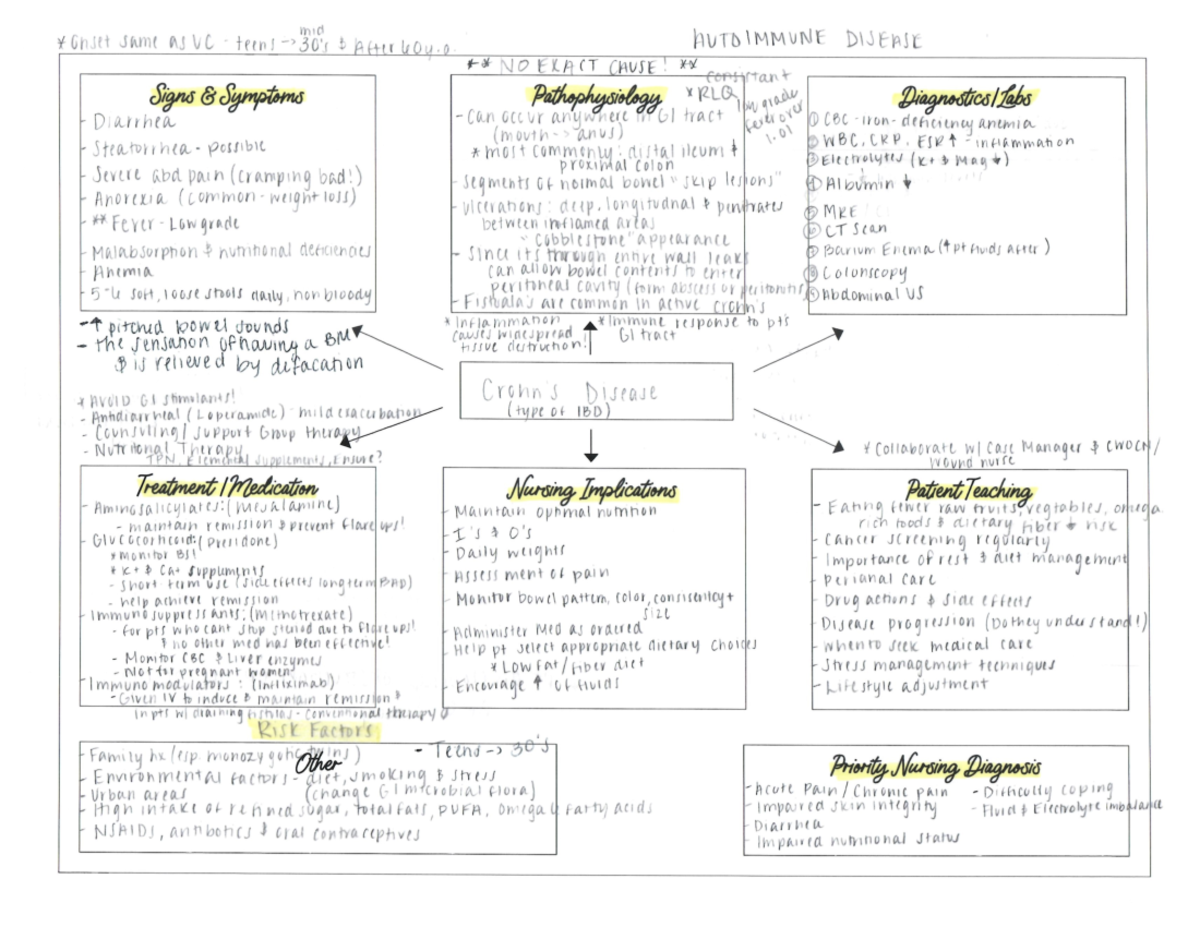 * Onset same as UC - teens -> mid 30's & After 60 y.o.
AUTOIMMUNE DISEASE
** NO EXACT CAUSE! **
Signs & Symptoms
- Diarrhea
- Steatorrhea - possible
- Severe abd pain (cramping bad!)
- Anorexia (common - weight loss)
- ** Fever - Low grade
- Malabsorption & nutritional deficiencies
- Anemia
- 5-6 soft, loose stools daily, non bloody
- ↑ pitched bowel sounds
- the sensation of having a BM
& is relieved by defacation
Pathophysiology
* RLQ
consistant
low grade
fever over
1.01
- Can occur anywhere in GI tract
(mouth -> anus)
* most commonly: distal ileum &
proximal colon
- Segments of normal bowel "skip lesions"
- Ulcerations: deep, longitudnal & penitrates
between inflamed areas
"Cobblestone" appearance
- Since its through entire wall leaks
can allow bowel contents to enter
peritoneal cavity (form abscess or peritonitis)
- Fishula's are common in active crohn's
* Inflammation
causes widespread
tissue destruction!
* Immune response to pt's
GI tract
Diagnostics/Labs
① CBC - iron-deficiency anemia
② WBC, CRP, ESR ↑ - inflammation
③ Electrolytes (K+ & Mag ↓)
④ Albumin ↓
MRE
CT Scan
Barium Enema (↑ pt fluids after)
Colonscopy
Abdominal US
Crohn's Disease
(type of IBD)
* AVOID GI stimulants!
- Antidiarrheal (Loperamide) - mild exacerbation
- Counsuling/ Support Group therapy
- Nutritonal Therapy
TPN, Elemental Supplements, Ensure?
Treatment/Medication
- Aminosalicylates: (Mesalamine)
- maintain remission & prevent flare ups!
- Glucocorticoid: (Presidone)
* monitor BS!
* K+ & Ca+ Supplments
- Short-term use (side effects long term BAD)
- help achieve remission
- Immunosuppressants: (Methotrexate)
- for pts who cant stop steriod due to flare ups!
& no other med has been effective!
- Monitor CBC & Liver enzymes
- Not for pregnant women!
- Immunomodulators: (Infliximab)
- Given IV to induce & maintain remission &
In pts w/ draining fistulas - conventional therapy
Nursing Implications
- Maintain optimal nutrition
- I's & O's
- Daily weights
- Assessment of pain
- Monitor bowel pattern, color, consistency +
size
- Administer Med as ordered
- Help pt select appropriate dietary choices
* Low fat/fiber diet
- Encourage ↑ of fluids
* Collaborate w/ Case Manager & CWOCN/
wound nurse
Patient Teaching
- Eating fewer raw fruits, vegtables, omega
rich foods & dietary fiber ↓ risk
- Cancer screening regularly
- Importance of rest & diet management
- Perianal care
- Drug actions & side effects
- Disease progression (Do they understand!)
- When to seek medical care
- Stress management techniques
- Lifestyle adjustment
Risk Factor's
Other
- Family hx (esp. monozygotic twins)
- Teens -> 30's
- Environmental factors - diet, smoking & stress
- Urban areas (change GI microbial flora)
- High intake of refined sugar, total fats, PUFA, omega 6 fatty acids
- NSAIDs, antibotics & oral contraceptives
Priority Nursing Diagnosis
- Acute Pain / Chronic pain
- Impaired skin integrity
- Diarrhea
- Impaired nutritional status
- Difficulty coping
- Fluid & Electrolyte imbalance